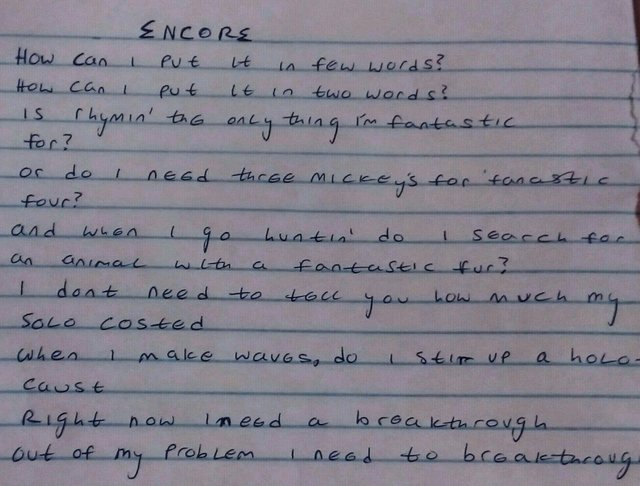 ENCORE
How can I put it in few words?
How can I put it in two words?
is rhymin' the only thing I'm fantastic
for?
or do I need three mickey's for fanastic
four?
and when I go huntin' do I search for
an animal with a fantastic fur?
I dont need to tell you how much my
solo costed
when I make waves, do I stirr up a holo-
caust
Right now I need a breakthrough
out of my problem I need to breakthroug